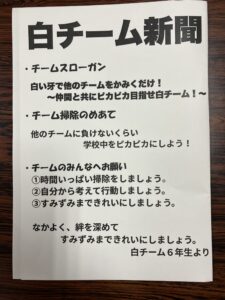 白チーム新聞
・チームスローガン
白い牙で他のチームをかみくだけ！
～仲間と共にピカピカ目指せ白チーム！～
・チーム掃除のめあて
他のチームに負けないくらい
学校中をピカピカにしよう！
・チームのみんなへお願い
①時間いっぱい掃除をしましょう。
②自分から考えて行動しましょう。
③すみずみまできれいにしましょう。
なかよく、絆を深めて
すみずみまできれいにしましょう。
白チーム６年生より